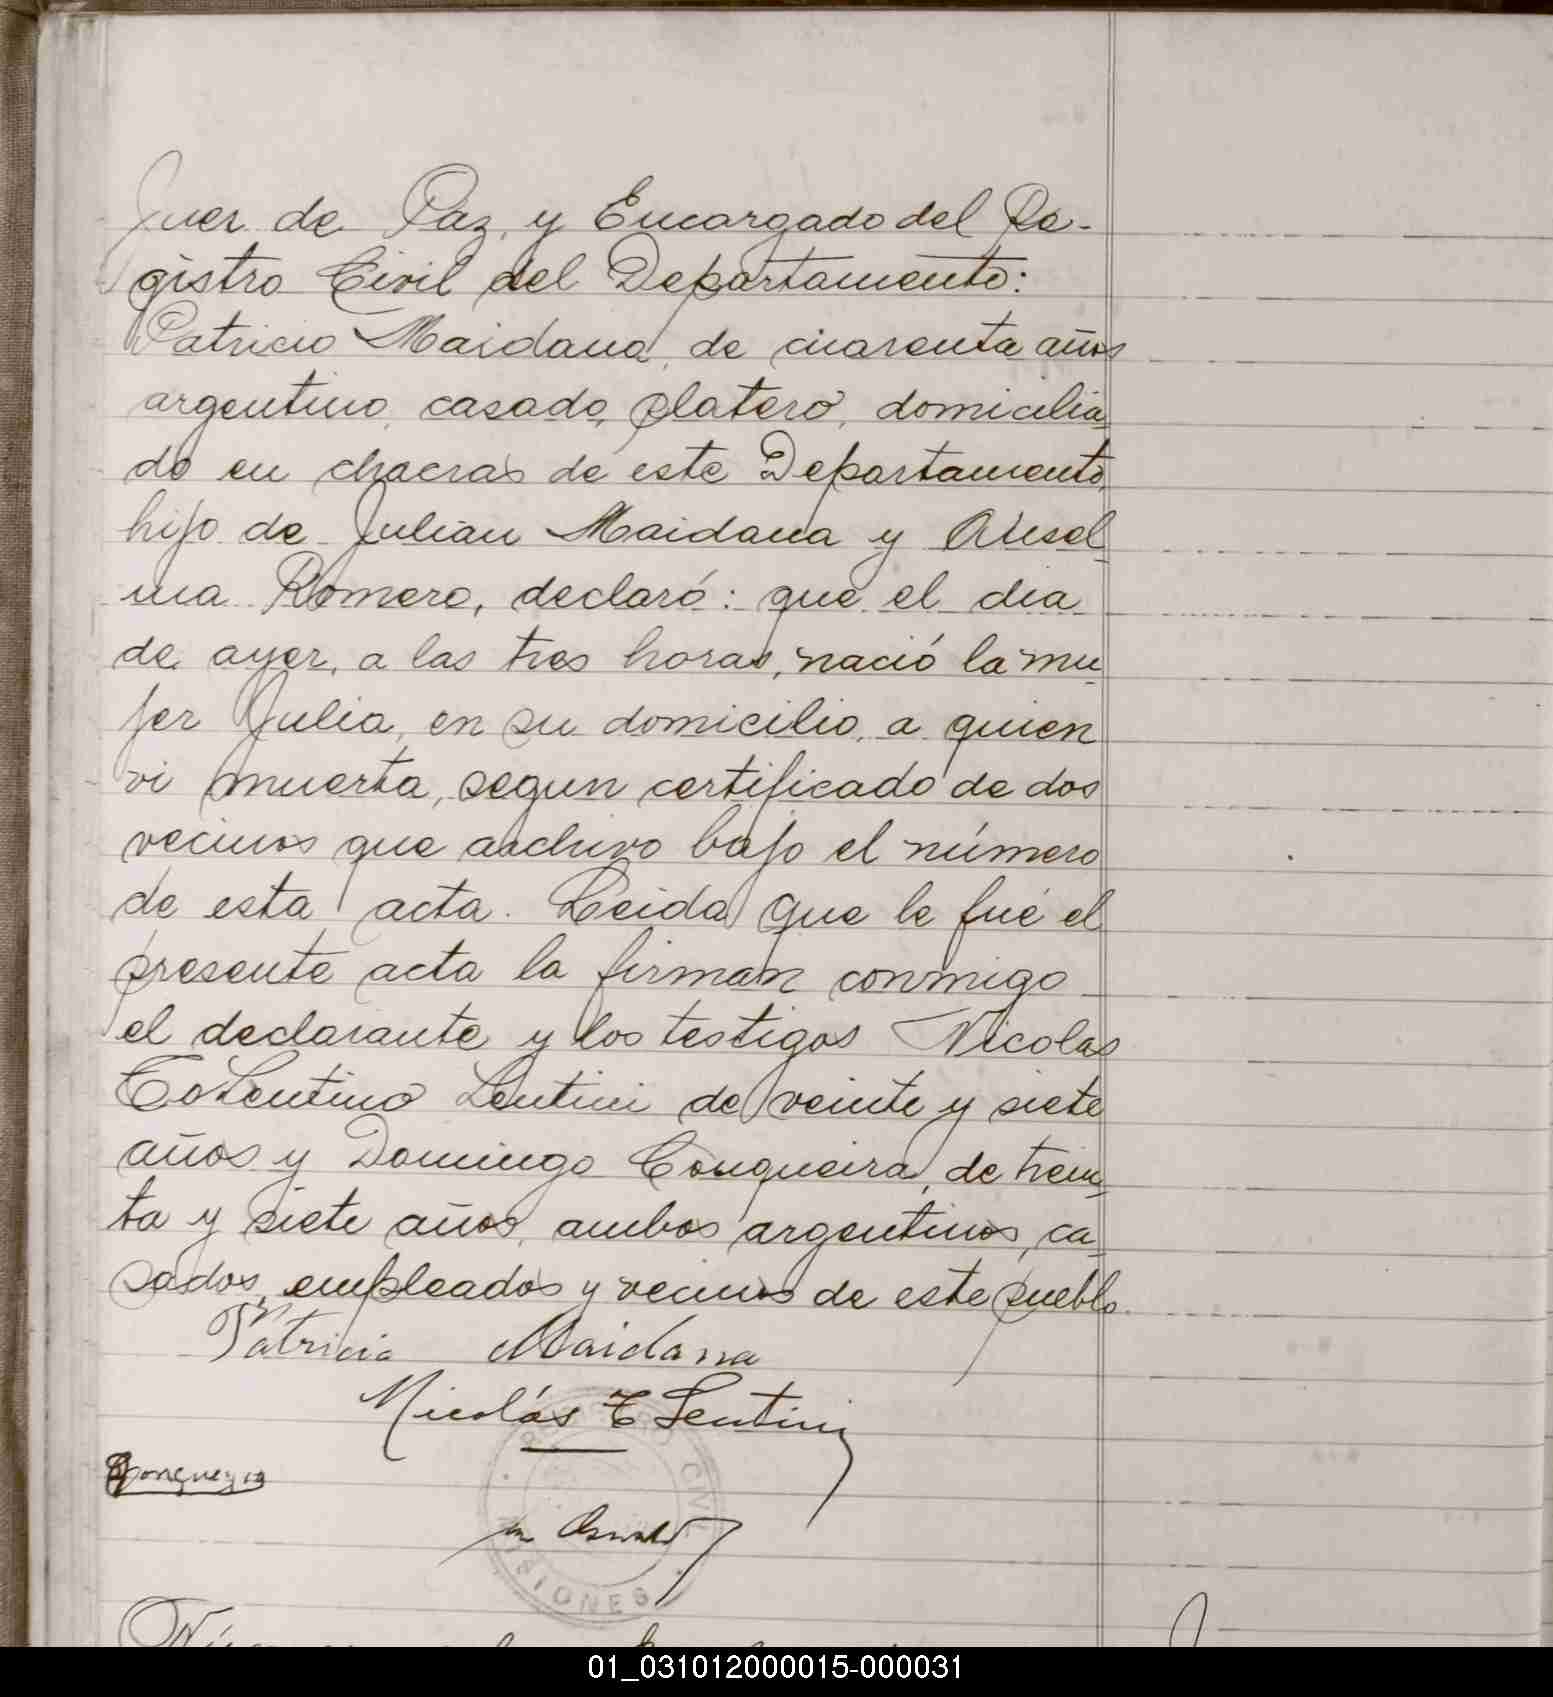 Juez de Paz, y Encargado del Re-
gistro Civil del Departamento:
Patricio Maidana, de cuarenta años
argentino, casado, platero, domicilia
do en chacras de este Departamento,
hijo de Julián Maidana y Ansel
ma Romero, declaró: que el dia
de ayer, a las tres horas, nació la mu
jer Julia, en su domicilio, a quien
vi muerta, segun certificado de dos
vecinos que archivo bajo el número
de esta acta. Leida que le fué el
presente acta la firman conmigo
el declarante y los testigos Nicolas
Tolentino Lentini de veinte y siete
años y Domingo Conqueira, de trein
ta y siete años, ambos argentinos, ca
sados, empleados y vecinos de este pueblo.
Patricio Maidana
Nicolás T Lentini
REGISTRO CIVIL
MISIONES
01_031012000015-000031